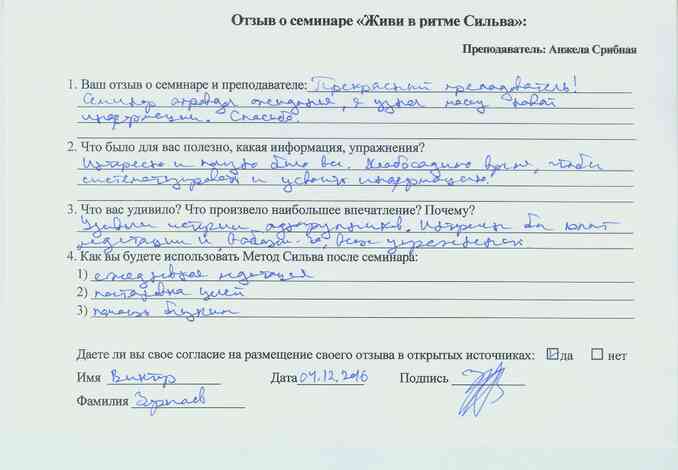 Отзыв о семинаре «Живи в ритме Сильва»:
Преподаватель: Анжела Срибная
1. Ваш отзыв о семинаре и преподавателе: Прекрасный преподаватель!
Семинар оправдал ожидания, я узнал массу новой
информации. Спасибо.
2. Что было для вас полезно, какая информация, упражнения?
Интересно и полезно было все. Необходимо время, чтобы
систематизировать и усвоить информацию.
3. Что вас удивило? Что произвело наибольшее впечатление? Почему?
Удивили истории одногруппников. Интересен был
медитации и, все упражнения
4. Как вы будете использовать Метод Сильва после семинара:
1) ежедневная медитация
2) постановка целей
3) помощь близким
Даете ли вы свое согласие на размещение своего отзыва в открытых источниках: да нет
Имя Виктор Дата 04.12.2016 Подпись
Фамилия